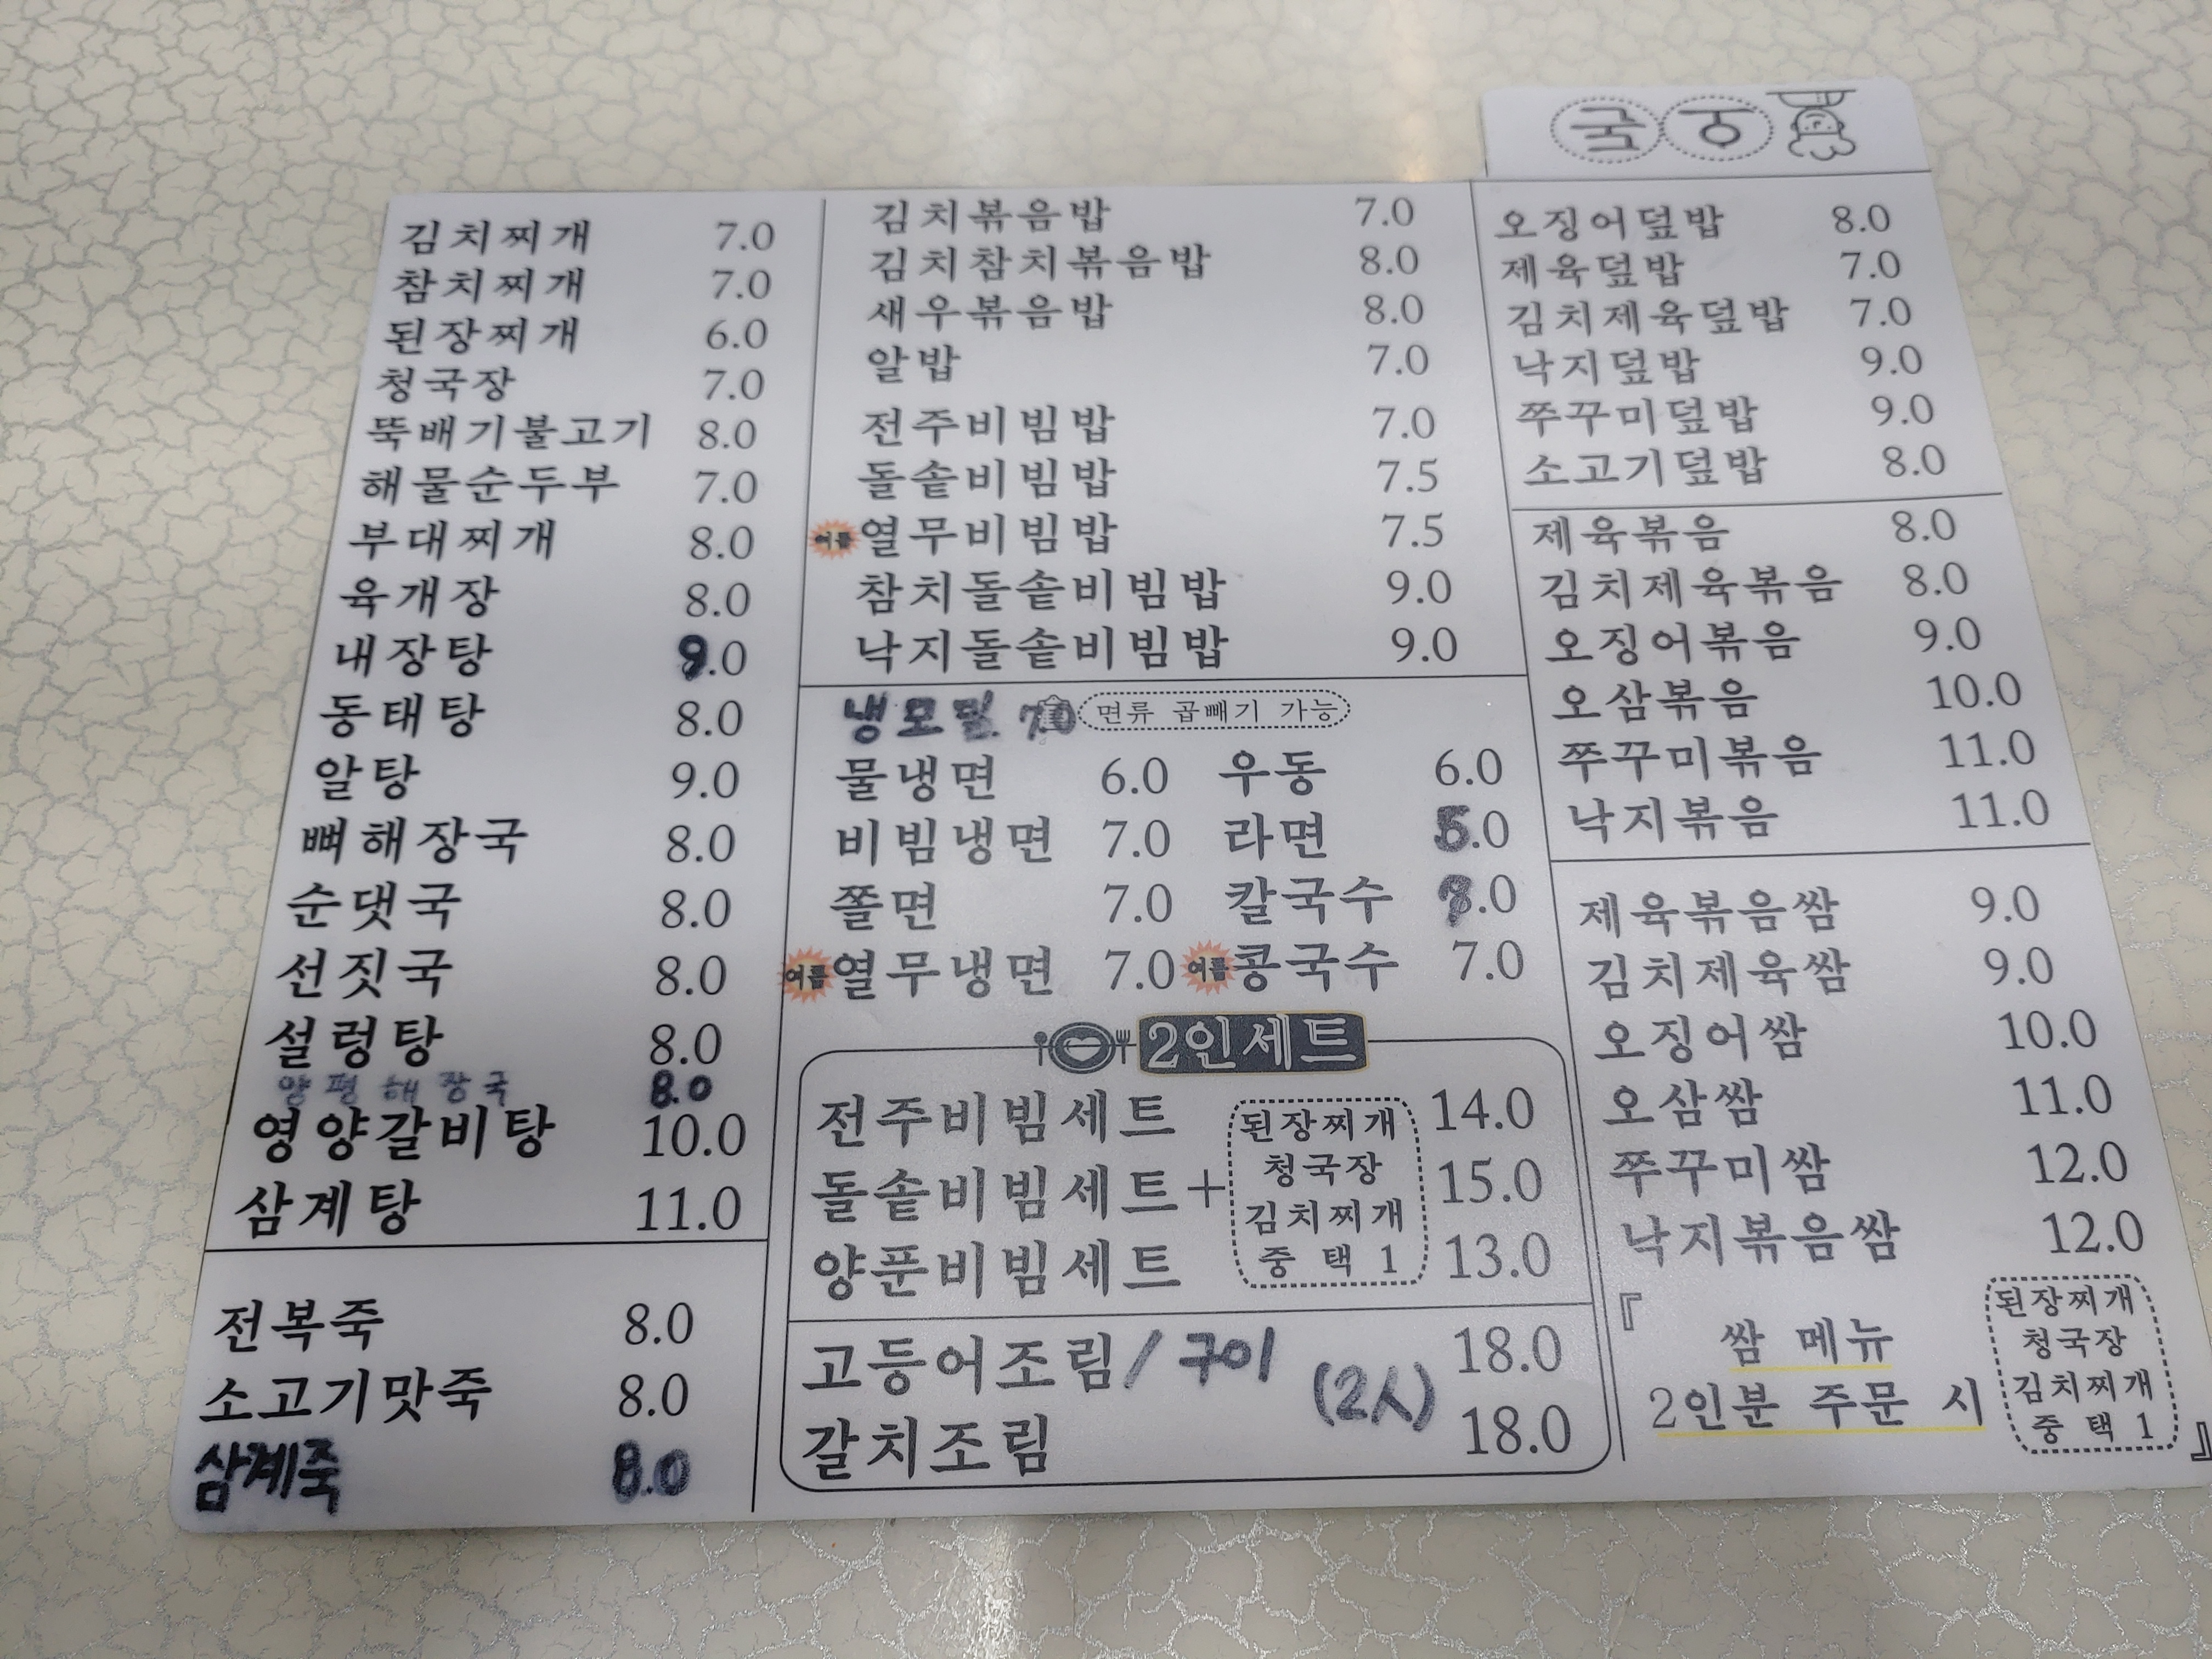 국 ㅎ
김치찌개 7.0
참치찌개 7.0
된장찌개 6.0
청국장 7.0
뚝배기불고기 8.0
해물순두부 7.0
부대찌개 8.0
육개장 8.0
내장탕 9.0
동태탕 8.0
알탕 9.0
뼈해장국 8.0
순댓국 8.0
선짓국 8.0
설렁탕 8.0
양평해장국 8.0
영양갈비탕 10.0
삼계탕 11.0
전복죽 8.0
소고기맛죽 8.0
삼계죽 8.0
김치볶음밥 7.0
김치참치볶음밥 8.0
새우볶음밥 8.0
알밥 7.0
전주비빔밥 7.0
돌솥비빔밥 7.5
여름 열무비빔밥 7.5
참치돌솥비빔밥 9.0
낙지돌솥비빔밥 9.0
냉모밀 7.0 면류 곱빼기 가능
물냉면 6.0 우동 6.0
비빔냉면 7.0 라면 5.0
쫄면 7.0 칼국수 7.0
여름 열무냉면 7.0 여름 콩국수 7.0
2인세트
전주비빔세트 14.0
돌솥비빔세트 15.0
양푼비빔세트 13.0
+
된장찌개
청국장
김치찌개
중 택 1
고등어조림/구이 18.0
(2人)
갈치조림 18.0
오징어덮밥 8.0
제육덮밥 7.0
김치제육덮밥 7.0
낙지덮밥 9.0
쭈꾸미덮밥 9.0
소고기덮밥 8.0
제육볶음 8.0
김치제육볶음 8.0
오징어볶음 9.0
오삼볶음 10.0
쭈꾸미볶음 11.0
낙지볶음 11.0
제육볶음쌈 9.0
김치제육쌈 9.0
오징어쌈 10.0
오삼쌈 11.0
쭈꾸미쌈 12.0
낙지볶음쌈 12.0
『 쌈 메뉴
2인분 주문 시
된장찌개
청국장
김치찌개
중 택 1 』